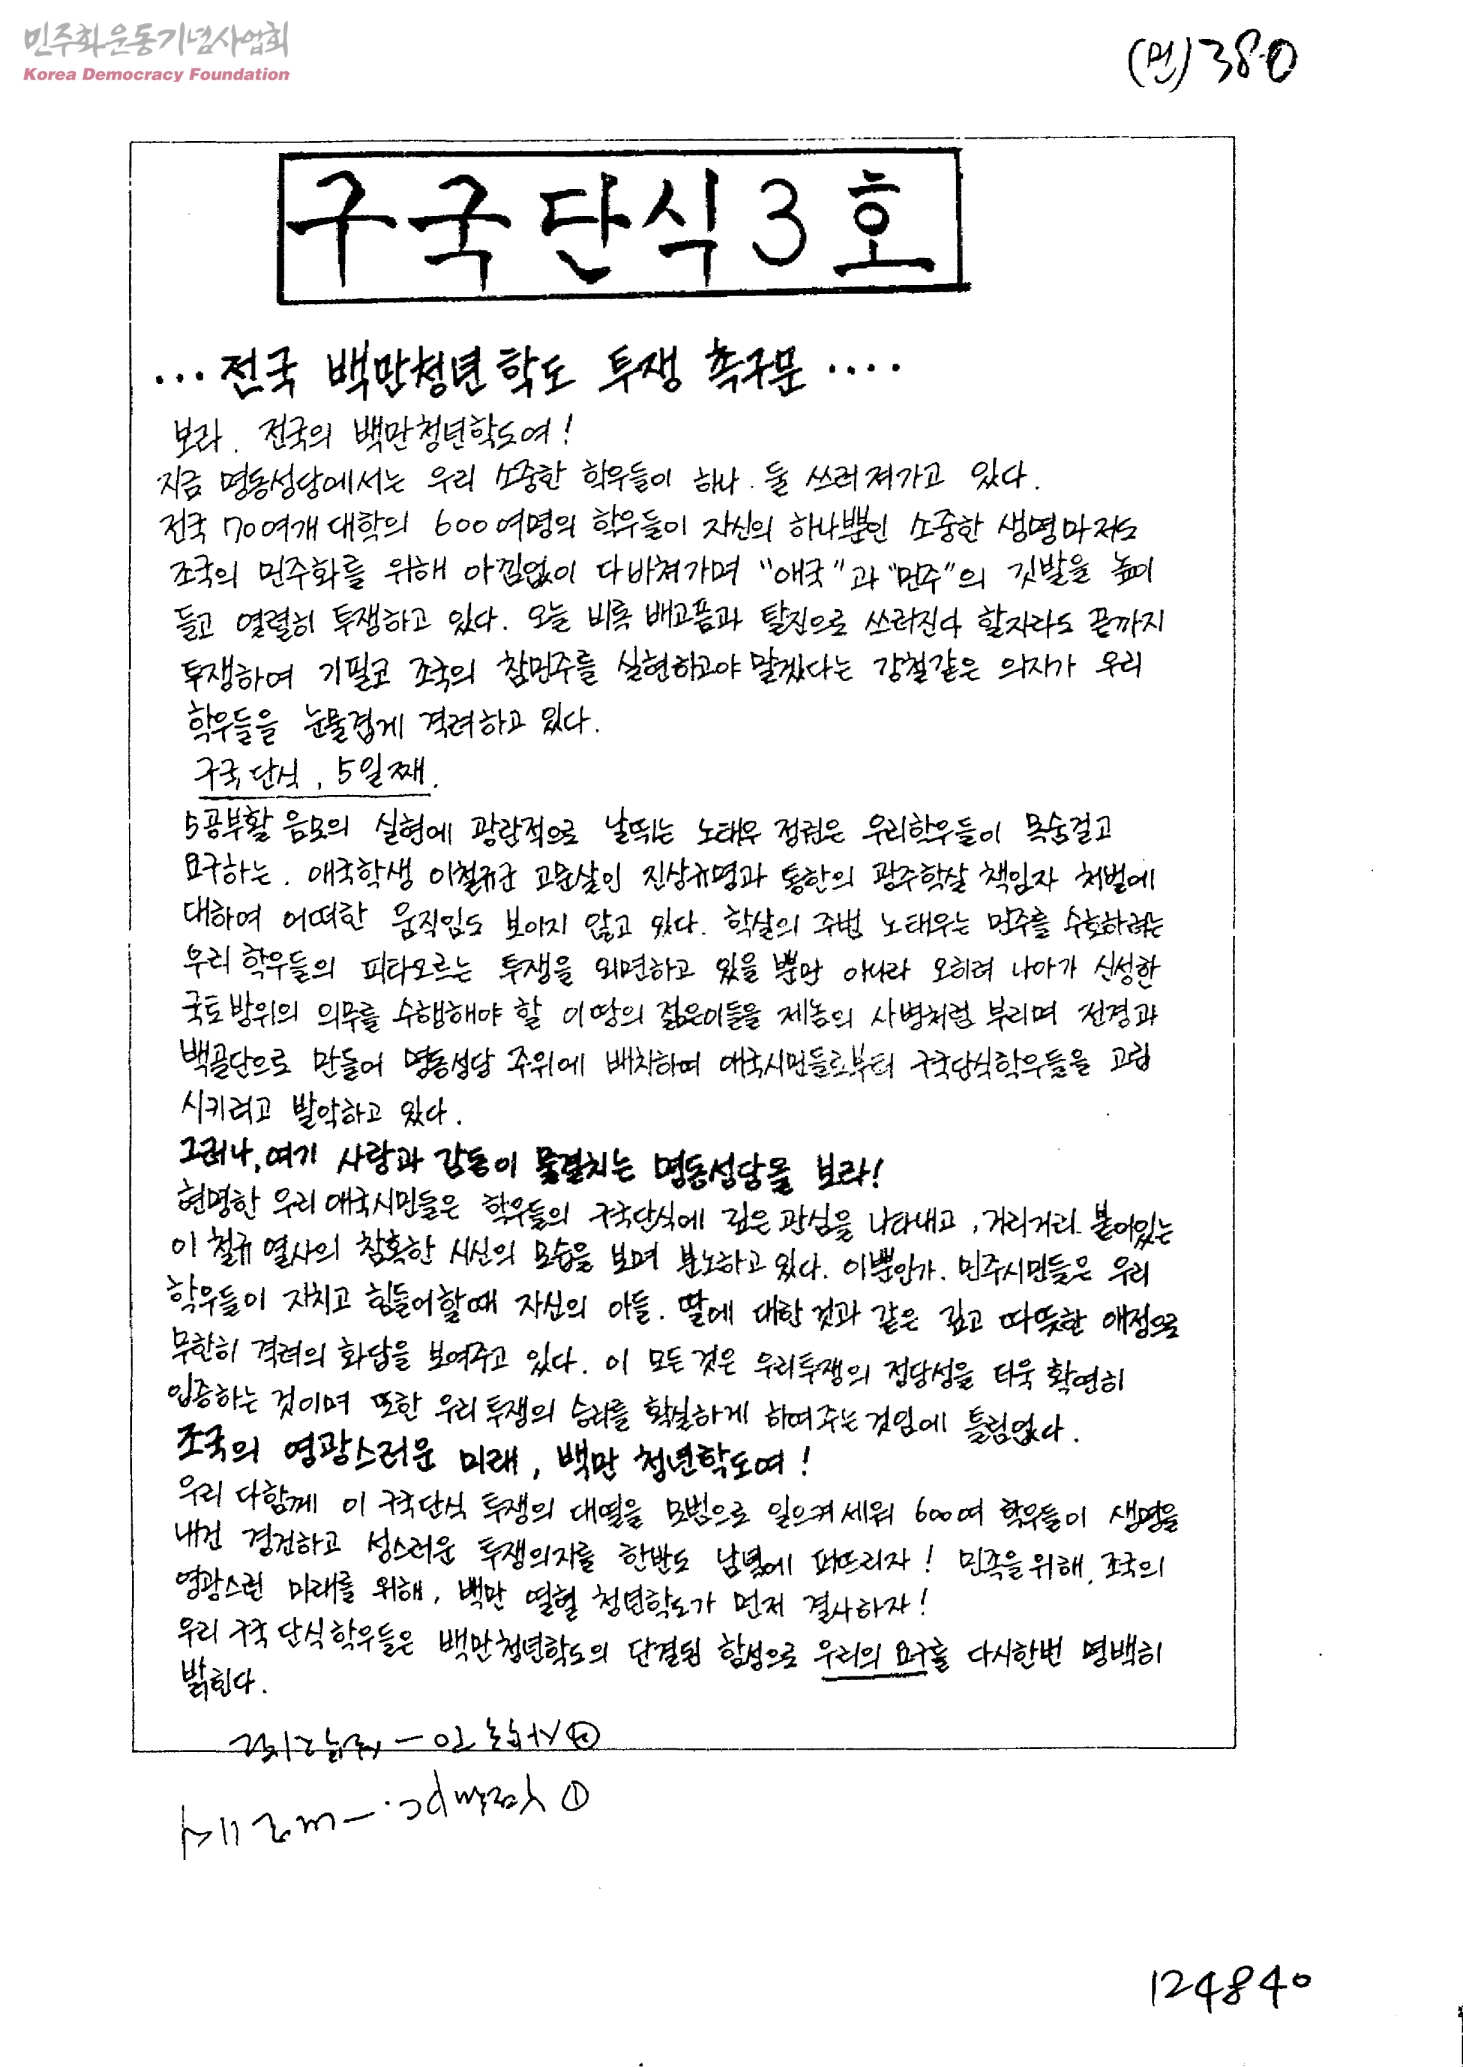 민주화운동기념사업회
Korea Democracy Foundation
(민) 380
구국단식 3호
... 전국 백만청년학도 투쟁 촉구문 ....
보라. 전국의 백만청년학도여!
지금 명동성당에서는 우리 소중한 학우들이 하나. 둘 쓰러져가고 있다.
전국 70여개 대학의 600여명의 학우들이 자신의 하나뿐인 소중한 생명마저도
조국의 민주화를 위해 아낌없이 다바쳐가며 "애국"과 "민주"의 깃발을 높이
들고 열렬히 투쟁하고 있다. 오늘 비록 배고픔과 탈진으로 쓰러진다 할지라도 끝까지
투쟁하여 기필코 조국의 참민주를 실현하고야 말겠다는 강철같은 의지가 우리
학우들을 눈물겹게 격려하고 있다.
구국단식, 5일째.
5공부활 음모의 실현에 광란적으로 날뛰는 노태우 정권은 우리학우들이 목숨걸고
요구하는. 애국학생 이철규군 고문살인 진상규명과 통한의 광주학살 책임자 처벌에
대하여 어떠한 움직임도 보이지 않고 있다. 학살의 주범 노태우는 민주를 수호하려는
우리 학우들의 피타오르는 투쟁을 외면하고 있을 뿐만 아니라 오히려 나아가 신성한
국토방위의 의무를 수행해야 할 이땅의 젊은이들을 제놈의 사병처럼 부리며 전경과
백골단으로 만들어 명동성당 주위에 배치하며 애국시민들로부터 구국단식학우들을 고립
시키려고 발악하고 있다.
그러나, 여기 사랑과 감동이 물결치는 명동성당을 보라!
현명한 우리 애국시민들은 학우들의 구국단식에 깊은 관심을 나타내고, 거리거리 붙어있는
이철규 열사의 참혹한 시신의 모습을 보며 분노하고 있다. 이뿐인가. 민주시민들은 우리
학우들이 지치고 힘들어할때 자신의 아들. 딸에 대한 것과 같은 깊고 따뜻한 애정으로
무한히 격려의 화답을 보여주고 있다. 이 모든 것은 우리투쟁의 정당성을 더욱 확연히
입증하는 것이며 또한 우리투쟁의 승리를 확실하게 하여주는것임에 틀림없다.
조국의 영광스러운 미래, 백만 청년학도여!
우리 다함께 이 구국단식 투쟁의 대열을 모범으로 일으켜세워 600여 학우들이 생명을
내건 경건하고 성스러운 투쟁의지를 한반도 남녘에 퍼뜨리자! 민족을위해, 조국의
영광스런 미래를 위해, 백만 열혈 청년학도가 먼저 결사하자!
우리 구국단식학우들은 백만청년학도의 단결된 함성으로 우리의 요구를 다시한번 명백히
밝힌다.
124840